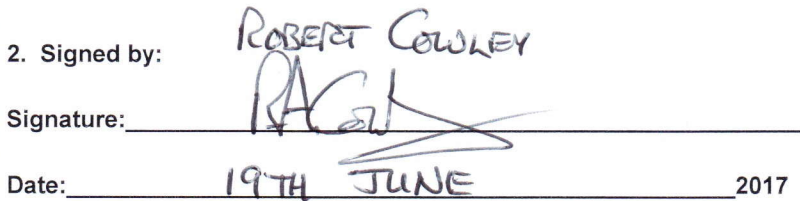 2. Signed by: ROBERT COWLEY
Signature: RACowl
Date: 19TH JUNE 2017